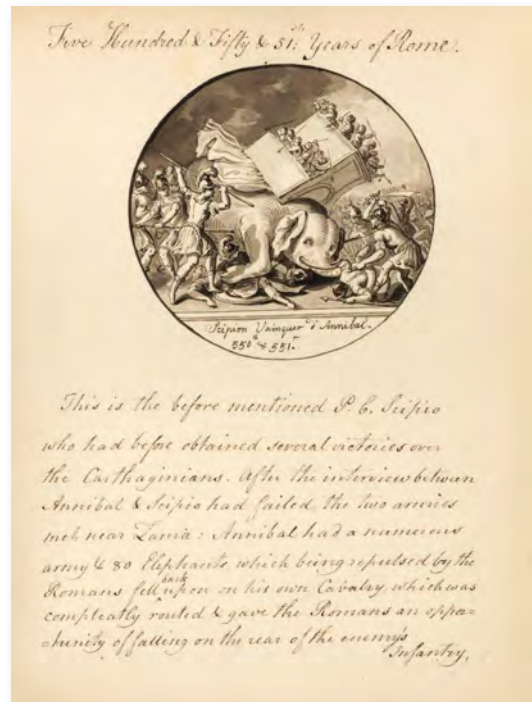 Five Hundred & Fifty & 51:st Years of Rome.
Scipion Vainquer d'Annibal.
550 & 551.
This is the before mentioned P. C. Scipio
who had before obtained several victories over
the Carthaginians. After the interview between
Annibal & Scipio had failed, the two armies
met near Zama: Annibal had a numerous
army & 80 Elephants, which being repulsed by the
Romans fell back upon on his own Cavalry, which was
compleatly routed & gave the Romans an oppor=
=tunity of falling on the rear of the enemy's
Infantry,